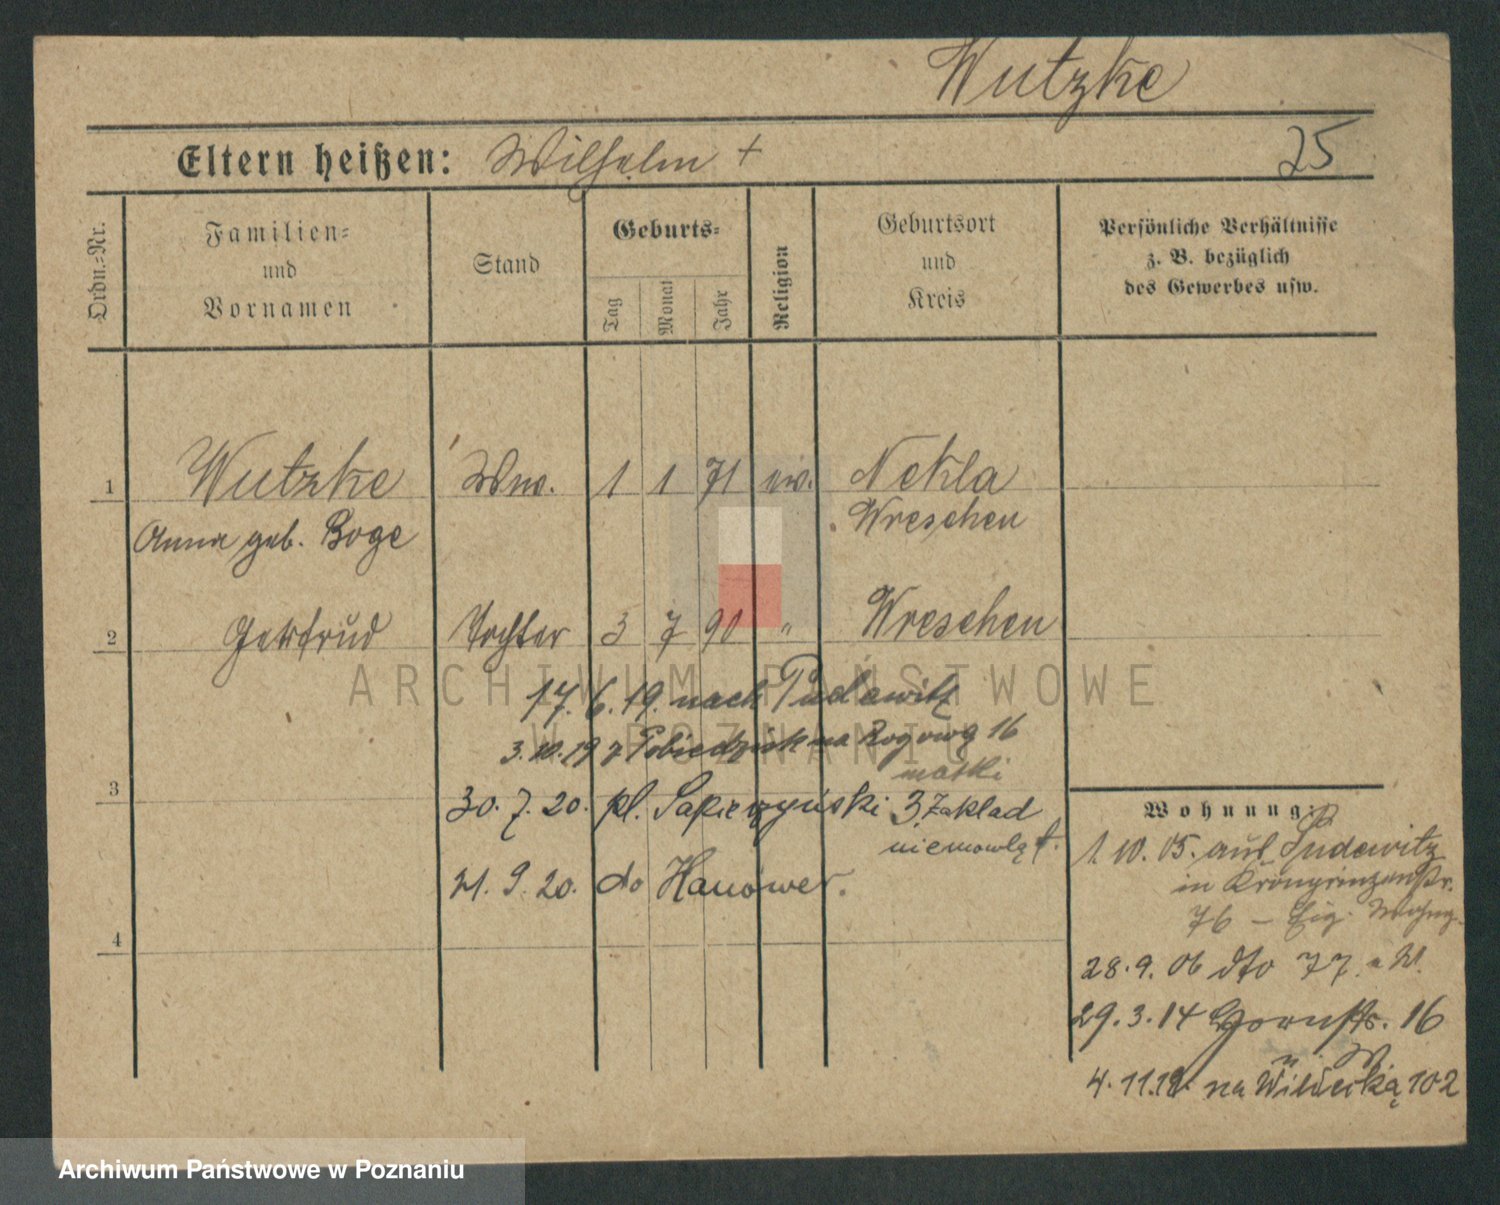 Wutzke
Eltern heißen: Wilhelm +
25
Ordn.-Nr.
Familien- und Vornamen
Stand
Geburts-
Tag
Monat
Jahr
Religion
Geburtsort und Kreis
Persönliche Verhältnisse z. B. bezüglich des Gewerbes usw.
1 Wutzke Ww. 1 1 71 ev. Nekla
Anna geb. Boge Wreschen
2 Gertrud Tochter 3 7 90 " Wreschen
17. 6. 19. nach Pudewitz
3. 10. 19 z Pobiedzisk na Rogową 16
matki
3
30. 7. 20. pl. Sapieżyński 3 Zakład
niemowląt.
21. 9. 20. do Hanower.
4
Wohnung:
1. 10. 05. aus Pudewitz
in Kronprinzenstr.
76 – Eig. Wohng.
28. 9. 06 dto 77.
29. 3. 14 16
4. 11. 19 na 102
ARCHIWUM PAŃSTWOWE
W POZNANIU
Archiwum Państwowe w Poznaniu